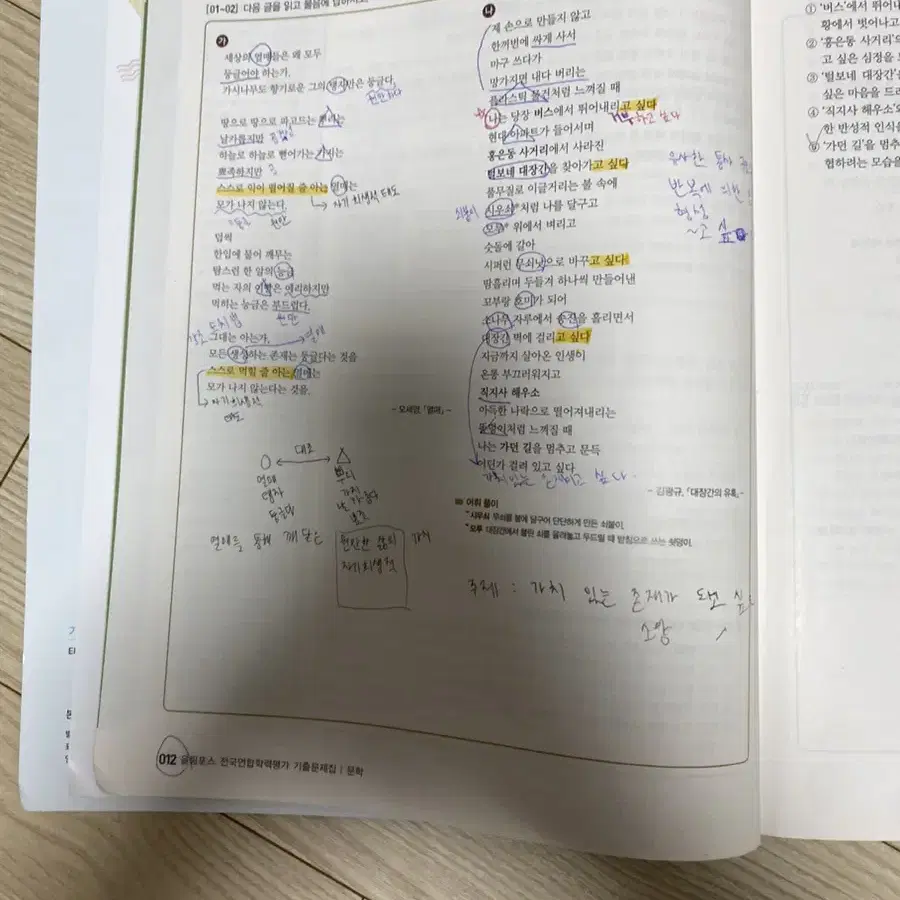 [01~02] 다음 글을 읽고 물음에 답하시오.
가
세상의 열매들은 왜 모두
둥글어야 하는가.
가시나무도 향기로운 그의 탱자만은 둥글다.
원만하다
땅으로 땅으로 파고드는 뿌리는
날카롭지만
하늘로 하늘로 뻗어가는 가지는
뾰족하지만
스스로 익어 떨어질 줄 아는 열매는
모가 나지 않는다.
→ 자기 희생적 태도
원만
덥썩
한입에 물어 깨무는
탐스런 한 알의 능금
먹는 자의 이빨은 예리하지만
먹히는 능금은 부드럽다.
원만
도치법
그대는 아는가,
열매
모든 생성하는 존재는 둥글다는 것을
스스로 먹힐 줄 아는 열매는
모가 나지 않는다는 것을.
→ 자기희생적
태도
- 오세영, 「열매」 -
대조
열매
탱자
둥글다
뿌리
가지
열매를 통해 깨달은
원만한 삶의
자기희생적
가치
나
제 손으로 만들지 않고
한꺼번에 싸게 사서
마구 쓰다가
망가지면 내다 버리는
플라스틱 물건처럼 느껴질 때
나는 당장 버스에서 뛰어내리고 싶다
현대 아파트가 들어서며
홍은동 사거리에서 사라진
털보네 대장간을 찾아가고 싶다
풀무질로 이글거리는 불 속에
시우쇠*처럼 나를 달구고
쇠붙이
모루* 위에서 벼리고
숫돌에 갈아
시퍼런 무쇠낫으로 바꾸고 싶다
땀흘리며 두들겨 하나씩 만들어낸
꼬부랑 호미가 되어
소나무 자루에서 송진을 흘리면서
대장간 벽에 걸리고 싶다
지금까지 살아온 인생이
온통 부끄러워지고
직지사 해우소
아득한 나락으로 떨어져내리는
똥덩이처럼 느껴질 때
나는 가던 길을 멈추고 문득
어딘가 걸려 있고 싶다
유사한 통사
반복에 의한
형성
~고 싶
- 김광규, 「대장간의 유혹」 -
어휘 풀이
*시우쇠 무쇠를 불에 달구어 단단하게 만든 쇠붙이.
*모루 대장간에서 불린 쇠를 올려놓고 두드릴 때 받침으로 쓰는 쇳덩이.
주제 : 가치 있는 존재가 되고 싶
소망
012 올림포스 전국연합학력평가 기출문제집 | 문학
① '버스'에서 뛰어내
황에서 벗어나고
② '홍은동 사거리'의
고 싶은 심정을
③ '털보네 대장간'을
싶은 마음을 드
④ '직지사 해우소'
한 반성적 인식을
⑤ '가던 길'을 멈추
협하려는 모습을